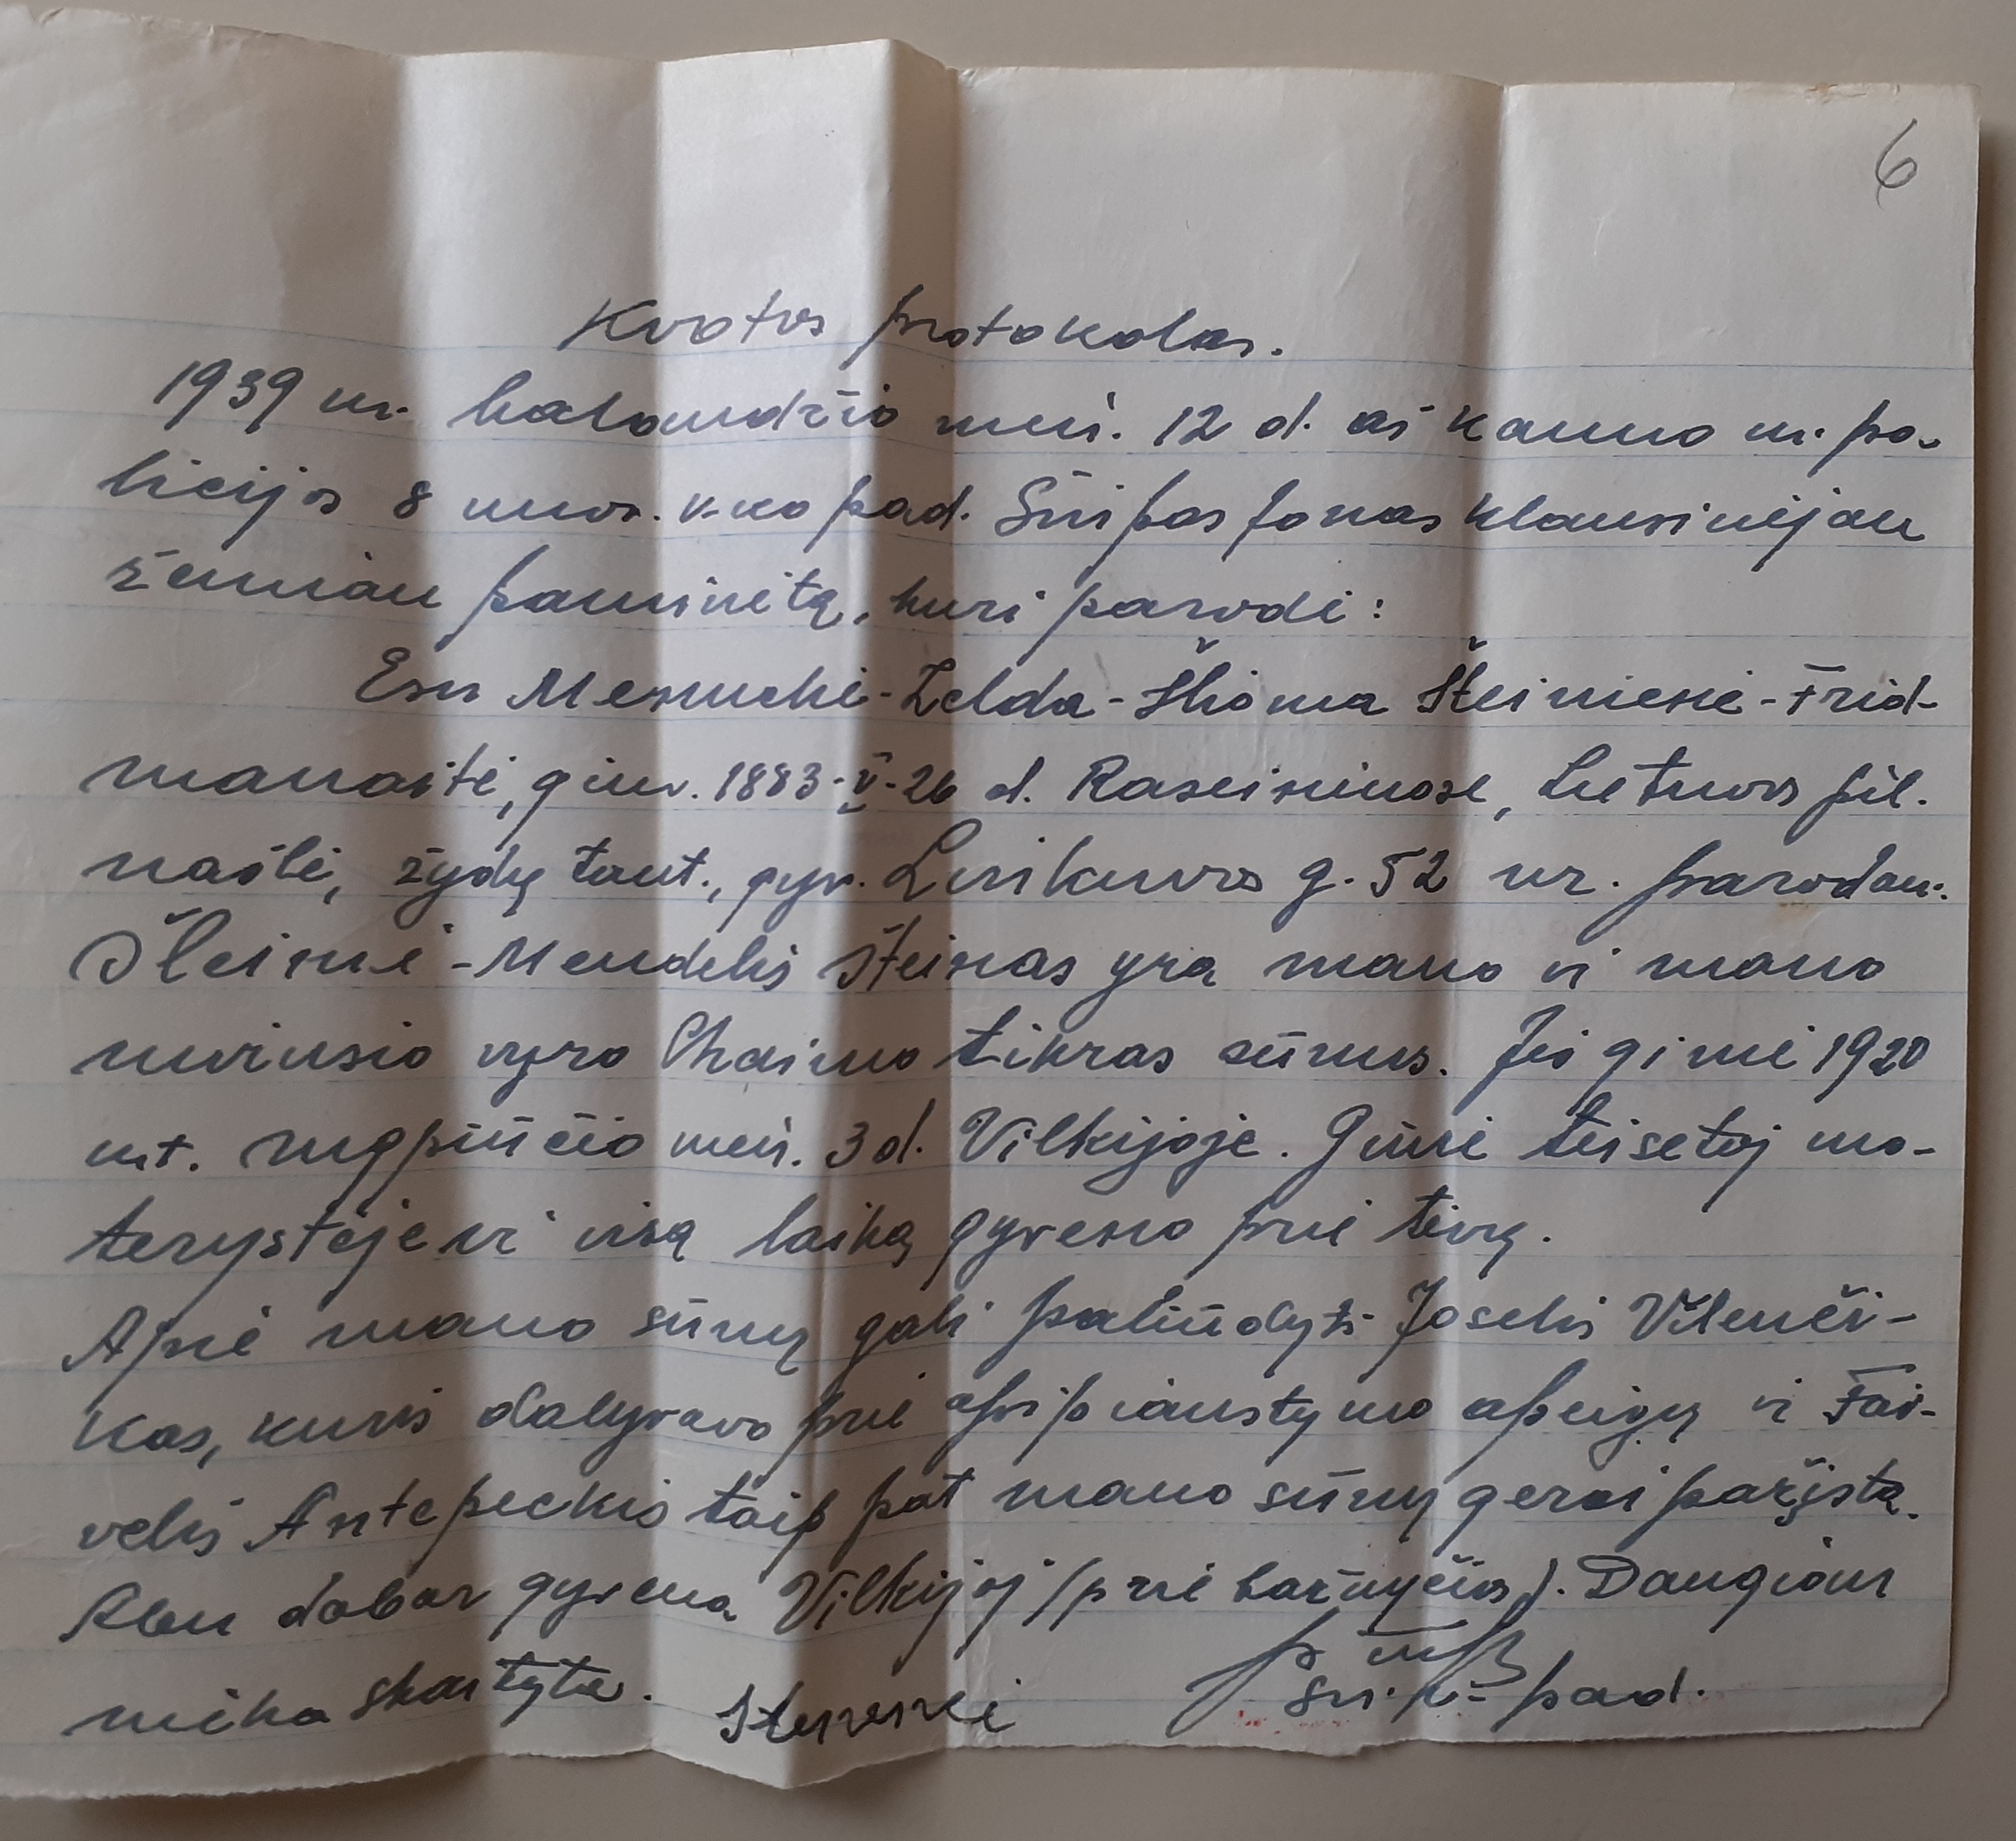 6
Kvotos protokolas.
1939 m. balandžio mėn. 12 d. aš Kauno m. po-
licijos 8 nuov. v-ko pad. Šnipas Jonas klausinėjau
žemiau paminėtą, kuri parodė:
Esu Menuchė-Zelda-Šlioma Šteinienė-Frid-
manaitė, gim. 1883-V-26 d. Raseiniuose, Lietuvos pil.
našlė, žydų taut., gyv. Linkuvos g. 52 nr. parodau:
Šleimė-Mendelis Šteinas yra mano ir mano
mirusio vyro Chaimo tikras sūnus. Jis gimė 1920
mt. rugpiūčio mėn. 3 d. Vilkijoje. Gimė teisetoj mo-
terystėje ir visą laiką gyveno prie tėvų.
Apie mano sūnų gali paliūdyti Joselis Vilenči-
kas, kuris dalyvavo prie apipiaustymo apeigų ir Fai-
velis Antepeckis taip pat mano sūnų gerai pažįsta.
Abu dabar gyvena Vilkijoj (prie bažnyčios). Daugiau
nieko skaityta.
pad.